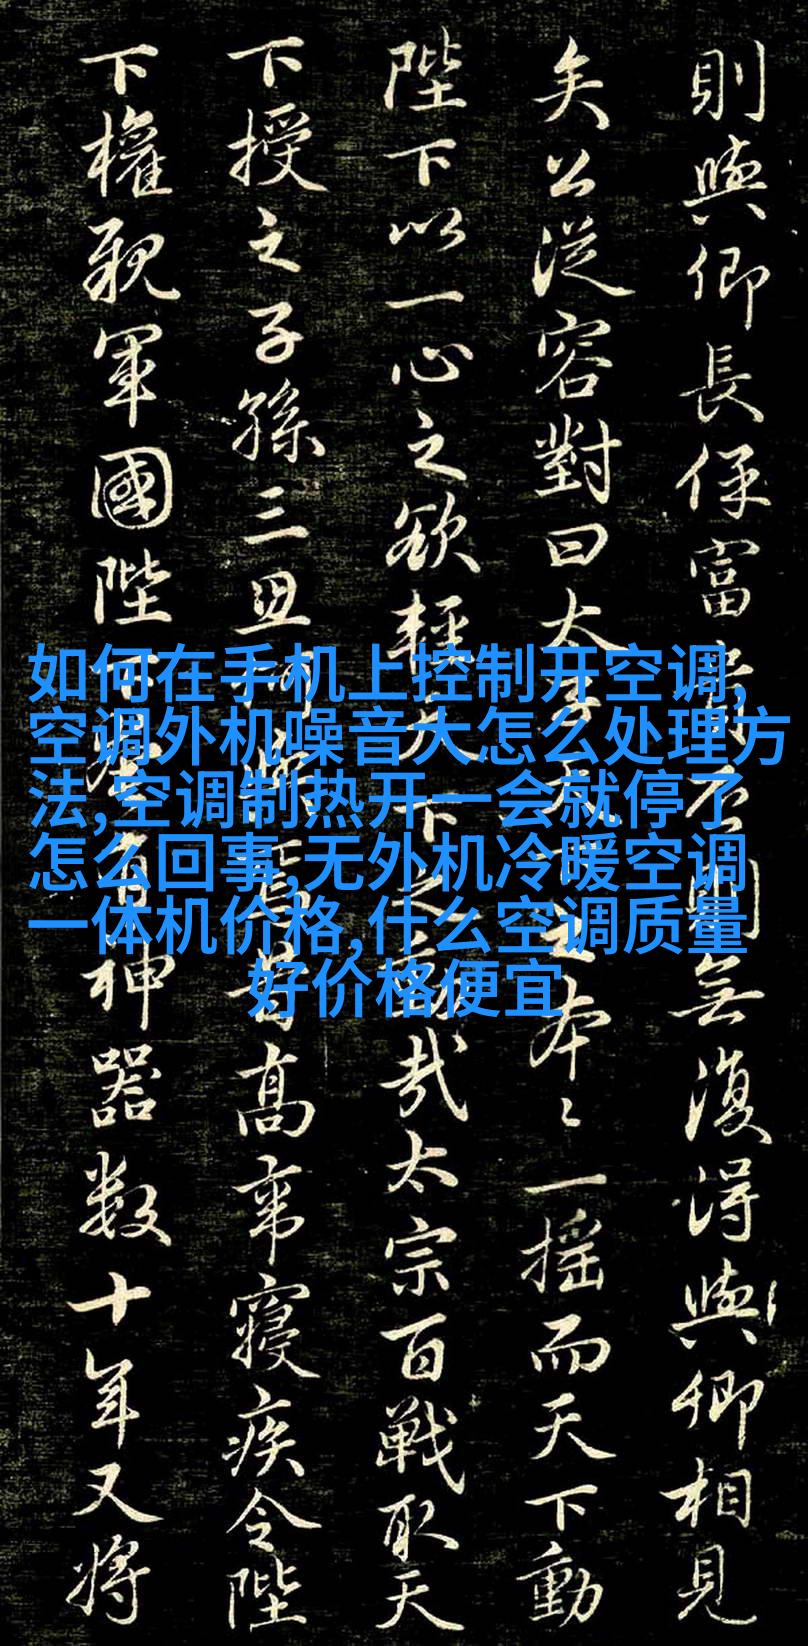 則與卿長保富貴否則無復得與卿相見
矣公從容對曰太本〻一搖而天下動
陛下以一心之欲輕天下之動哉太宗百戰取天
下授之子孫三高帝寢疾令陛
下權親軍國陛下有神器数十年又將
如何在手机上控制开空调,
空调外机噪音大怎么处理方
法,空调制热开一会就停了
怎么回事,无外机冷暖空调
一体机价格,什么空调质量
好价格便宜